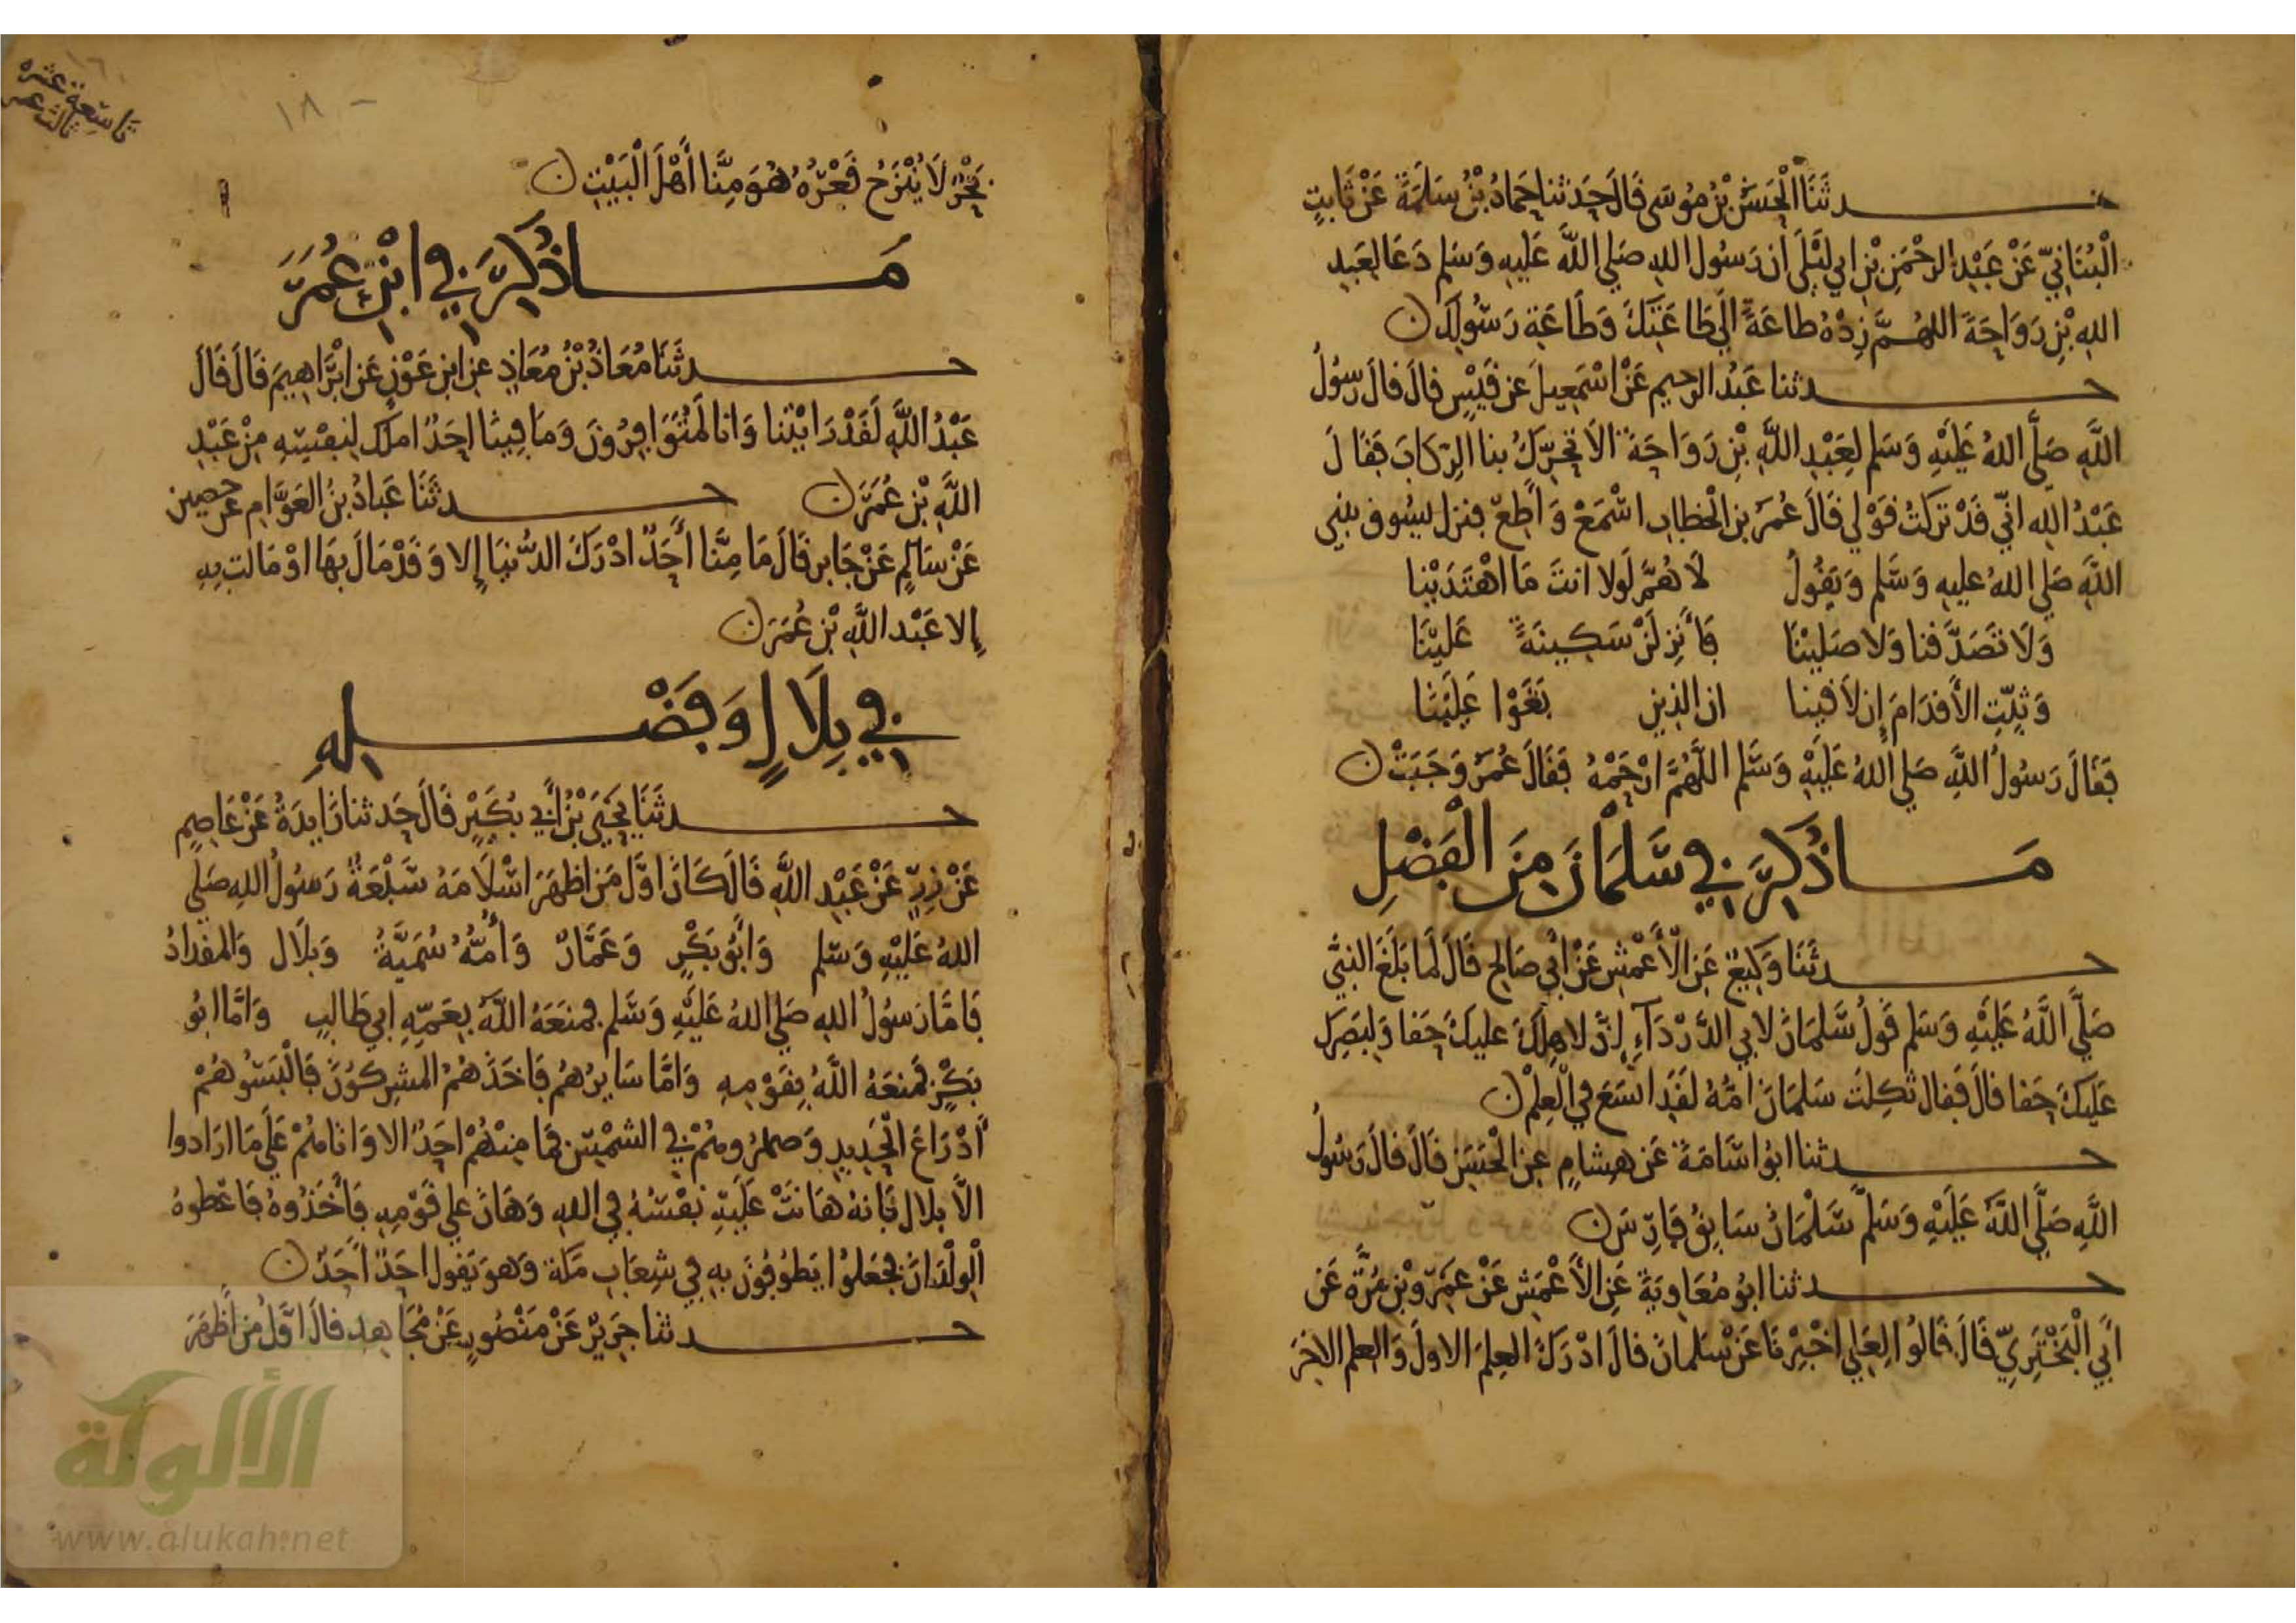 حدثنا الحسن بن موسى قال حدثنا حماد بن سلمة عن ثابت
البناني عن عبد الرحمن بن ابي ليلى ان رسول الله صلى الله عليه وسلم دعا لعبد
الله بن رواحة اللهم زده طاعة الى طاعتك وطاعة رسولك
حدثنا عبد الرحيم عن اسمعيل عن قيس قال قال رسول
الله صلى الله عليه وسلم لعبد الله بن رواحة الا تحرك بنا الركاب فقال
عبد الله اني قد تركت قولي قال عمر بن الخطاب اسمع واطع فنزل يسوق بنبي
الله صلى الله عليه وسلم ويقول لاهم لولا انت ما اهتدينا
ولا تصدقنا ولا صلينا فأنزلن سكينة علينا
وثبت الأقدام إن لاقينا ان الذين بغوا علينا
فقال رسول الله صلى الله عليه وسلم اللهم ارحمه فقال عمر وجبت
ما ذكر في سلمان من الفضل
حدثنا وكيع عن الأعمش عن أبي صالح قال لما بلغ النبي
صلى الله عليه وسلم قول سلمان لابي الدرداء إن لاهلك عليك حقا ولبصرك
عليك حقا قال فقال ثكلت سلمان امه لقد اتسع في العلم
حدثنا ابو اسامة عن هشام عن الحسن قال قال رسول
الله صلى الله عليه وسلم سلمان سابق فارس
حدثنا ابو معاوية عن الأعمش عن عمرو بن مرة عن
ابي البختري قال قالوا لعلي اخبرنا عن سلمان قال ادرك العلم الاول والعلم الاخر
تاسعة عشره
ثالث عشر
١٨٠
بحر لا ينزح قعره هو منا أهل البيت
ما ذكر في ابن عمر
حدثنا معاذ بن معاذ عن ابن عون عن ابراهيم قال قال
عبد الله لقد رايتنا وانا لمتوافرون وما فينا احد املك لنفسه من عبد
الله بن عمر حدثنا عباد بن العوام عن حصين
عن سالم عن جابر قال ما منا أحد ادرك الدنيا إلا وقد مال بها او مالت به
إلا عبد الله بن عمر
في بلال وفضله
حدثنا يحيى بن أبي بكير قال حدثنا زايدة عن عاصم
عن زر عن عبد الله قال كان اول من اظهر اسلامه سبعة رسول الله صلى
الله عليه وسلم وأبو بكر وعمار وأمه سمية وبلال والمقداد
فاما رسول الله صلى الله عليه وسلم فمنعه الله بعمه ابي طالب واما ابو
بكر فمنعه الله بقومه واما سايرهم فاخذهم المشركون فالبسوهم
أدراع الحديد وصهروهم في الشمس فما منهم احد الا واتاهم على ما ارادوا
الا بلال فانه هانت عليه نفسه في الله وهان على قومه فأخذوه فاعطوه
الولدان فجعلوا يطوفون به في شعاب مكة وهو يقول احد أحد
حدثنا جرير عن منصور عن مجاهد قال اول من أظهر
الألوكة
www.alukah.net